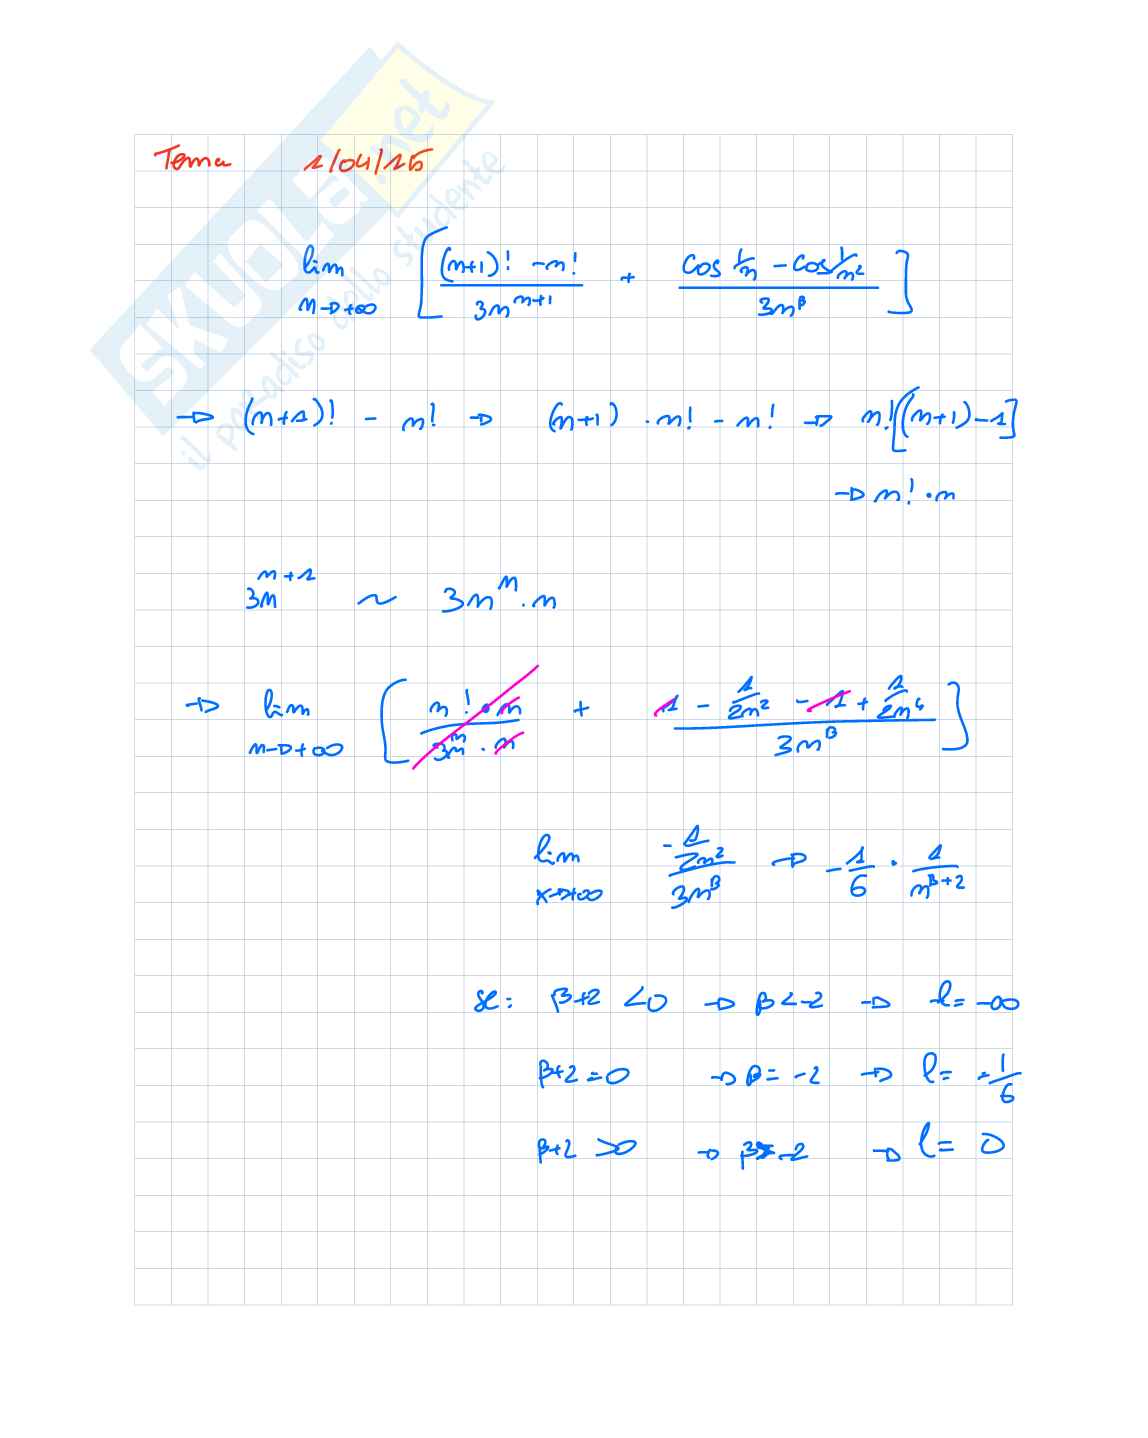 SKUOLA.net
il paradiso dello studente
Tema 1/04/15
lim n→+∞ [ ((n+1)! - n!) / (3n^(n+1)) + (cos 1/n - cos 1/n²) / (3n^β) ]
→ (n+1)! - n! → (n+1) · n! - n! → n! [(n+1) - 1]
→ n! · n
3n^(n+1) ~ 3n^n · n
→ lim n→+∞ [ (n! · n) / (3n^n · n) + (1 - 1/(2n²) - 1 + 1/(2n⁴)) / (3n^β) ]
lim x→+∞ (-1/(2n²)) / (3n^β) → -1/6 · 1/(n^(β+2))
se: β+2 < 0 → β < -2 → l = -∞
β+2 = 0 → β = -2 → l = -1/6
β+2 > 0 → β > -2 → l = 0